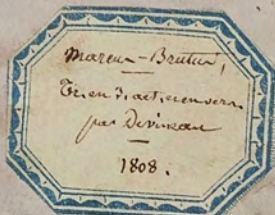 Marcus-Brutus,
Tr. en 3. act. et en vers
par Devineau
1808.